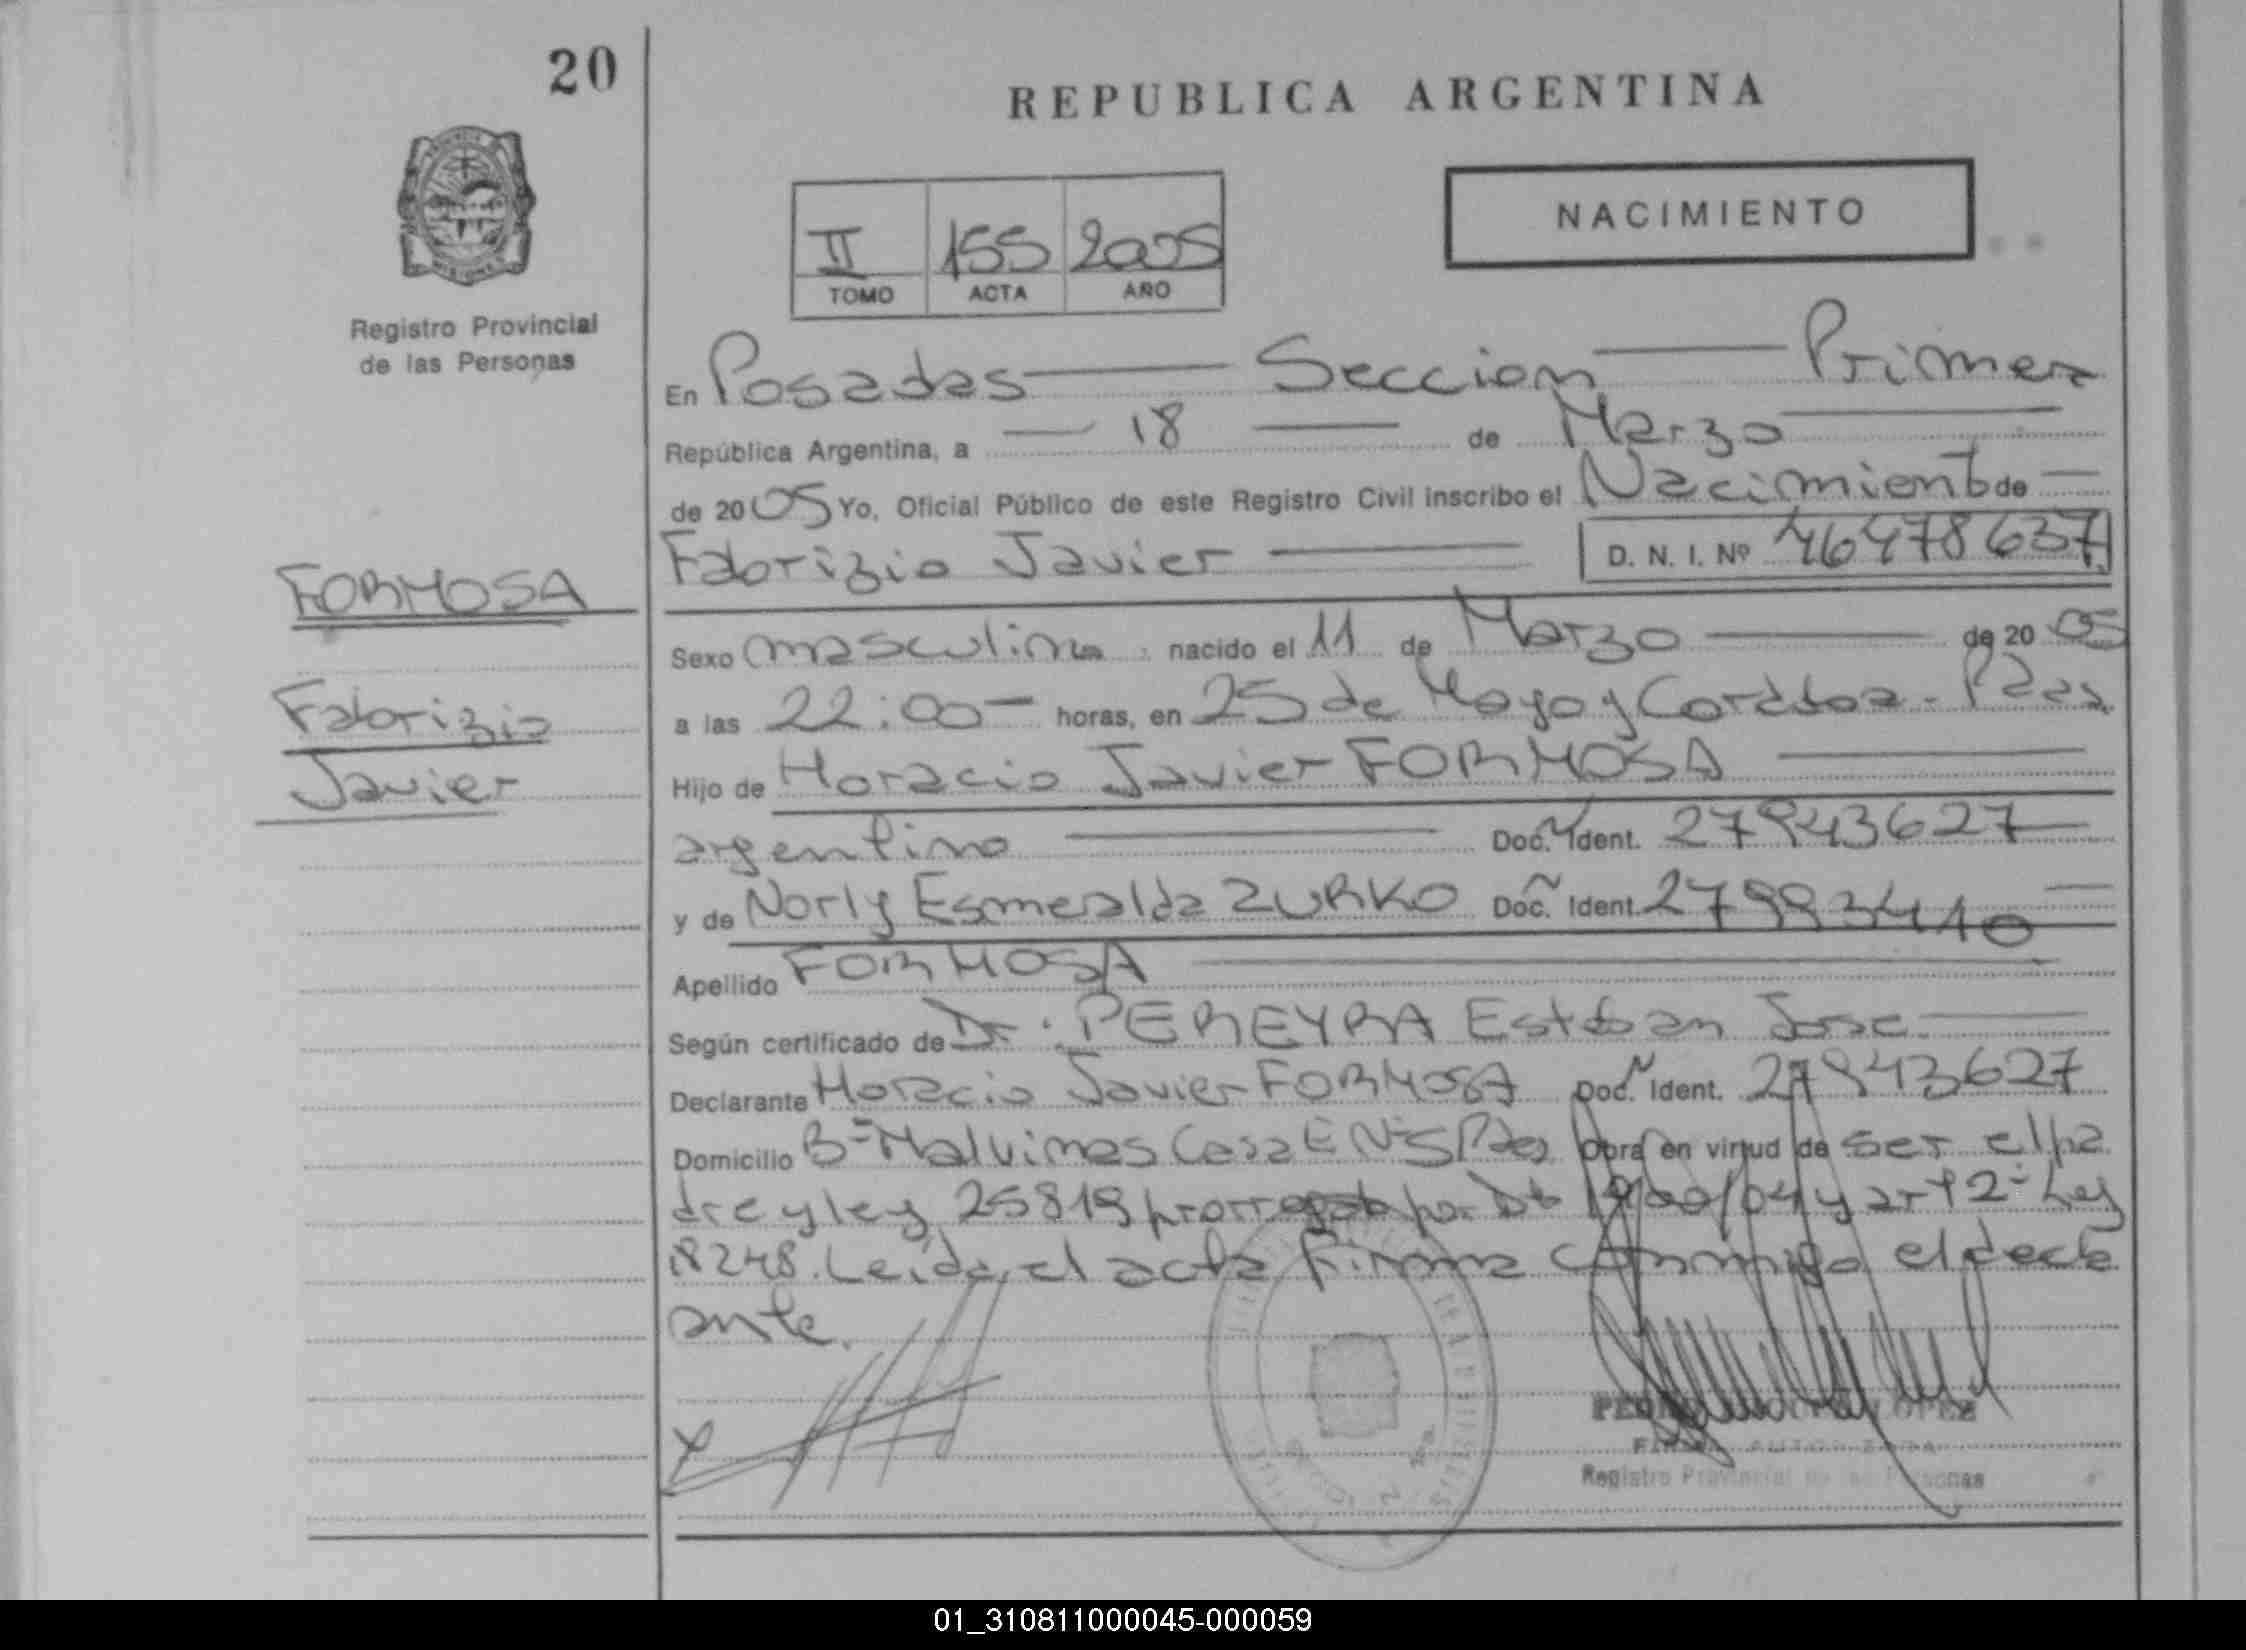 20
REPUBLICA ARGENTINA
NACIMIENTO
II 155 2005
TOMO ACTA AÑO
Registro Provincial
de las Personas
En Posadas Seccion Primera
República Argentina, a 18 de Marzo
de 2005 Yo, Oficial Público de este Registro Civil inscribo el Nacimiento de
Fabrizio Javier D. N. I. Nº 46478637
FORMOSA
Fabrizio
Javier
Sexo masculino nacido el 11 de Marzo de 20 05
a las 22:00 horas, en 25 de Mayo y Cordoba - Pdas.
Hijo de Horacio Javier FORMOSA
argentino Doc. Ident. 27943627
y de Norly Esmeralda ZURKO Doc. Ident. 27993440
Apellido FORMOSA
Según certificado de Dr. PEREYRA Esteban Jose
Declarante Horacio Javier FORMOSA Doc. Ident. 27943627
Domicilio Bº Malvinas Casa E Nº 5 Pdas Obra en virtud de ser el pa
dre y ley 25819 prorrogado por Dto 1900/04 y art 2º Ley
18248. Leída el acta firma conmigo el decla
ante.
LOPEZ
Registro Provincial de las Personas
01_310811000045-000059